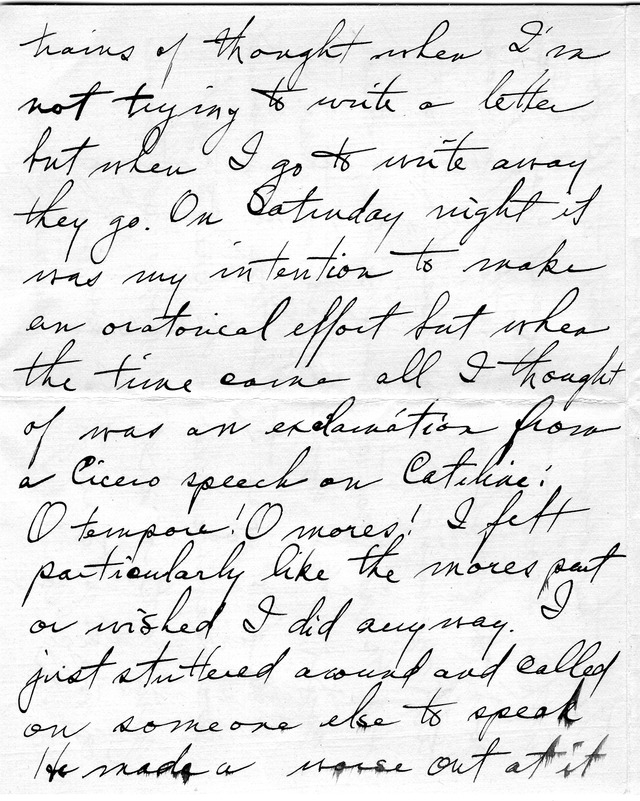 trains of thought when I'm
not trying to write a letter
but when I go to write away
they go. On Saturday night it
was my intention to make
an oratorical effort but when
the time came all I thought
of was an exclamation from
a Cicero speech on Catiline:
O tempore! O mores! I felt
particularly like the mores part
or wished I did anyway. I
just stuttered around and called
on someone else to speak
He made a worse out at it